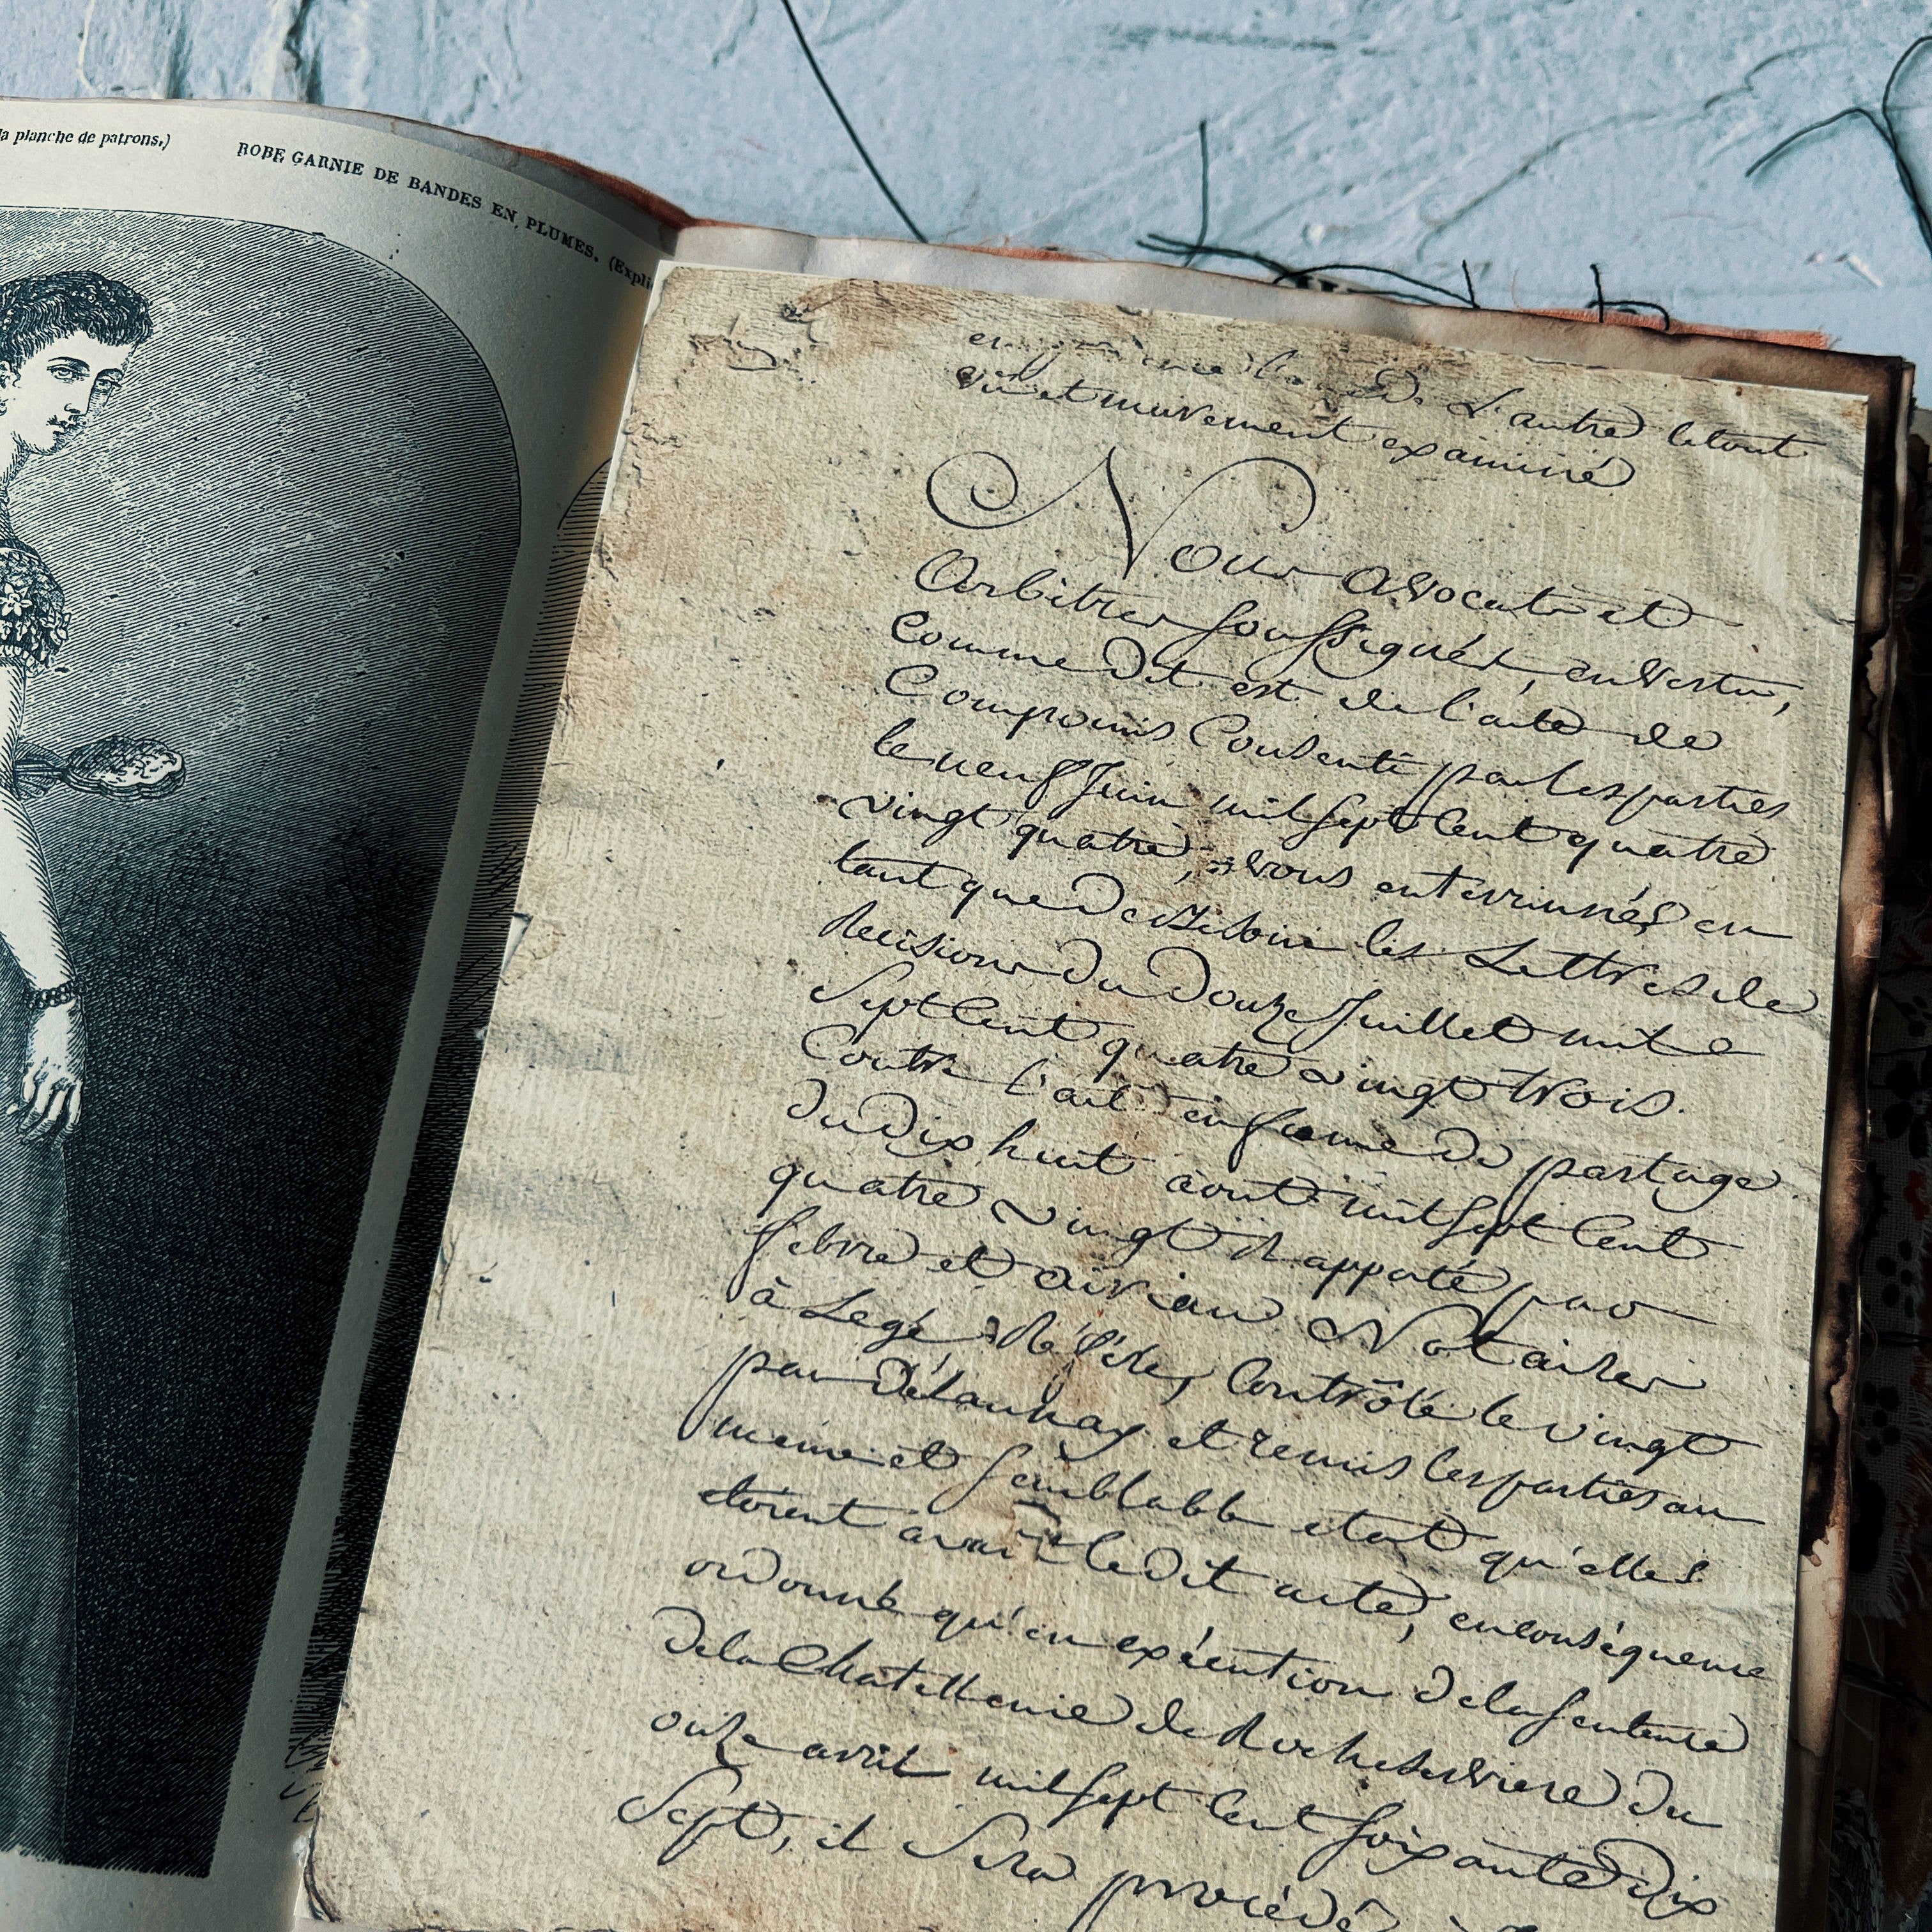 la planche de patrons.)
ROBE GARNIE DE BANDES EN PLUMES. (Expli
L'autre letout
vû et murement examiné
Nous avocats et
Arbitres soussignés, en vertu,
comme dit est de l'acte de
Compromis Consenti par les parties
le neuf Juin mil sept Cent quatre
vingt quatre, avons enterrinnés en
tant que de besoin les Lettres de
Recision du Douze Juillet mil
Sept Cent quatre vingt trois.
Contre l'acte en forme de partage
du dix huit aout mil sept Cent
quatre vingt Rapporté par
febvre et Notaires
à Legé, Contrôlé le vingt
par Délaunay et remis les parties au
meme et semblable etat qu'elles
etoient avant le dit acte, en conséquence
ordonne qu'en exécution de la sentence
De la Chatellenie de Rocheserviere du
onze avril mil sept Cent soixante Dix
Sept, il Sera procédé